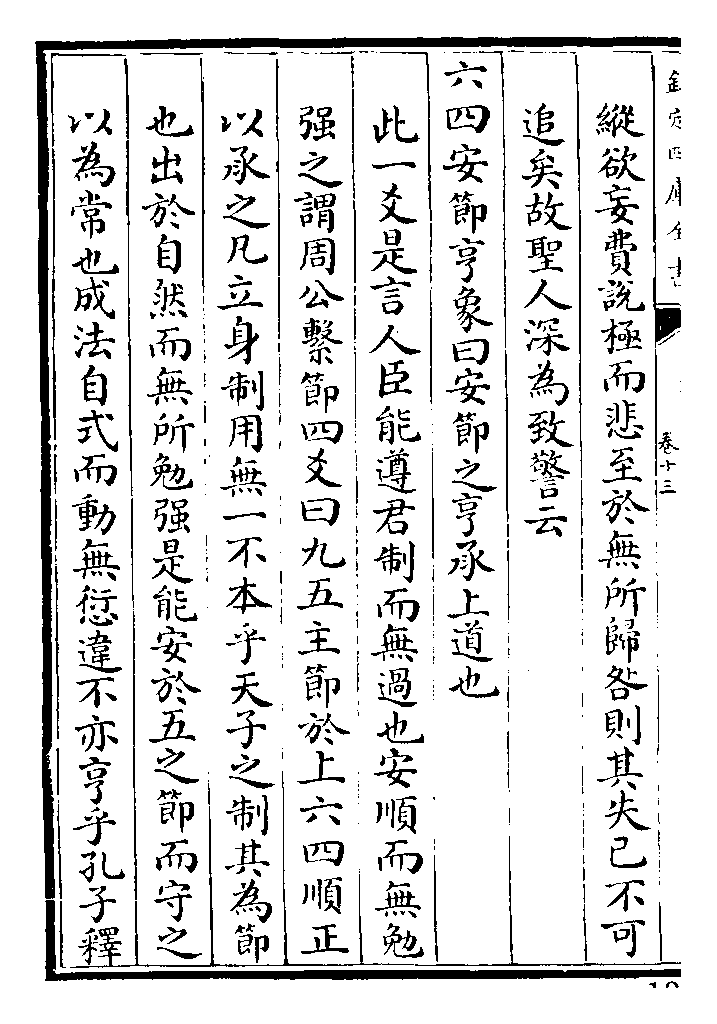 欽定四庫全書
卷十三
縱欲妄費說極而悲至於無所歸咎則其失已不可
追矣故聖人深為致警云
六四安節亨象曰安節之亨承上道也
此一爻是言人臣能遵君制而無過也安順而無勉
强之謂周公繫節四爻曰九五主節於上六四順正
以承之凡立身制用無一不本乎天子之制其為節
也出於自然而無所勉强是能安於五之節而守之
以為常也成法自式而動無愆違不亦亨乎孔子釋